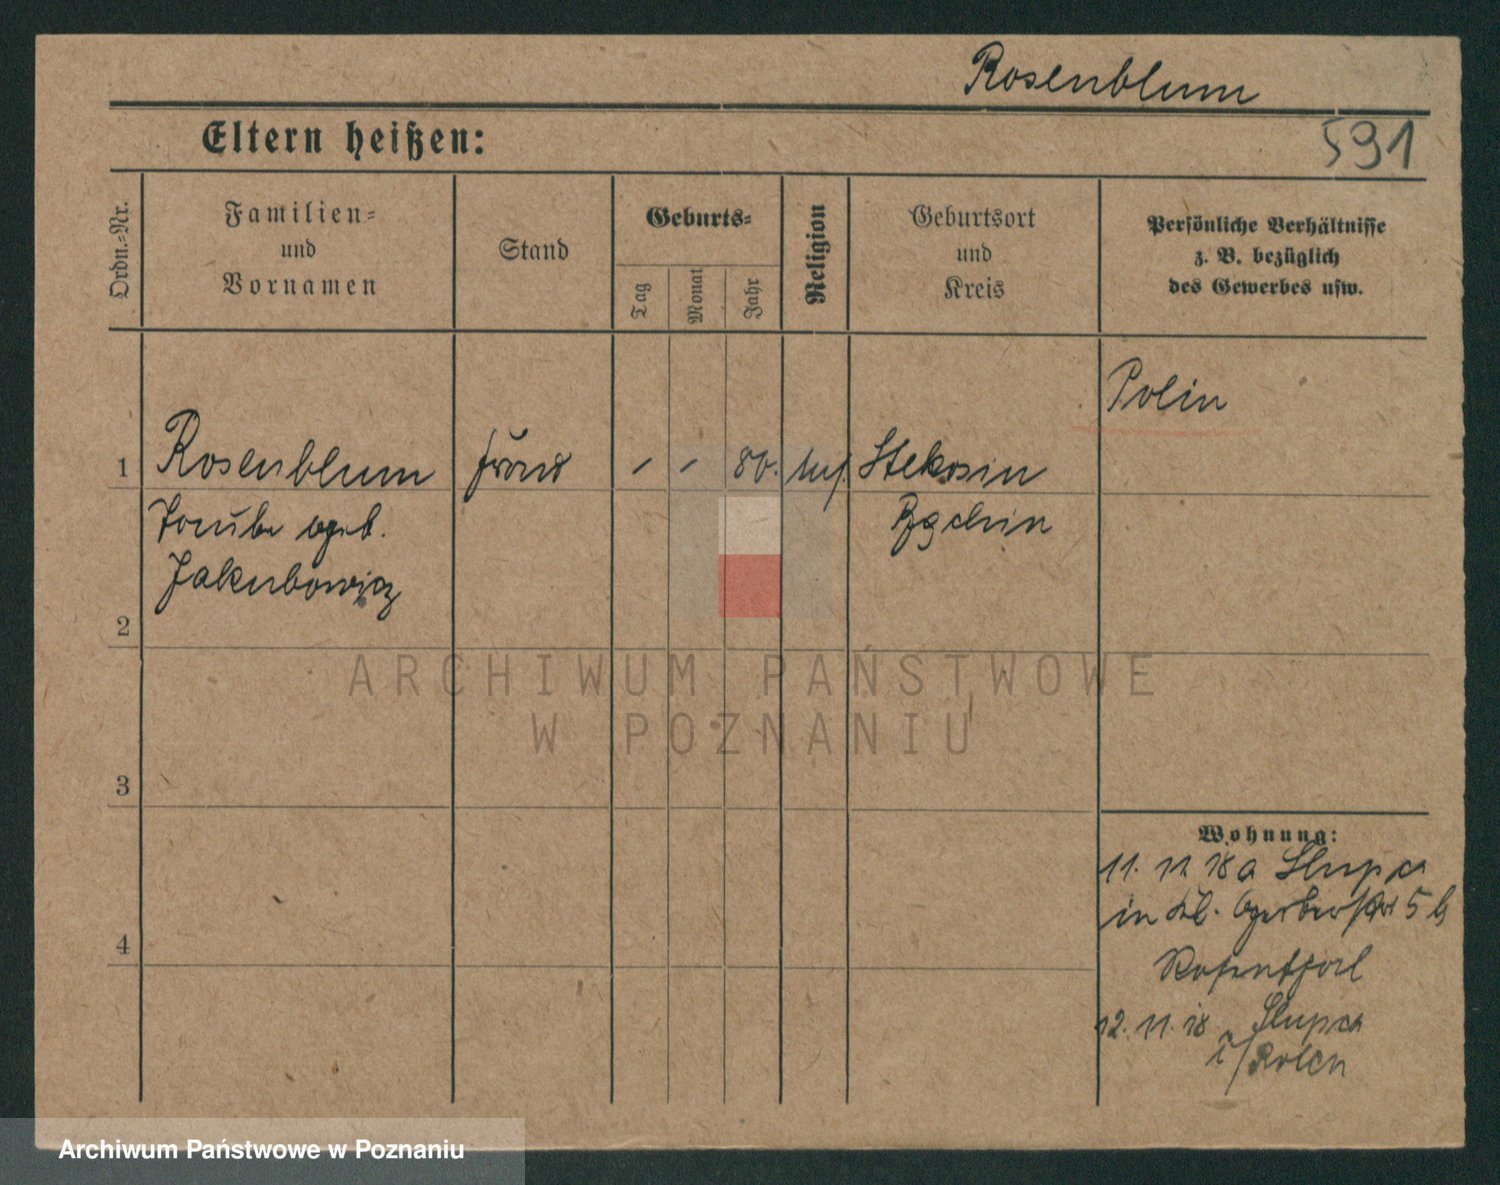 Rosenblum
591
Eltern heißen:
Ordn.-Nr.
Familien-
und
Vornamen
Stand
Geburts-
Tag
Monat
Jahr
Religion
Geburtsort
und
Kreis
Persönliche Verhältnisse
z. B. bezüglich
des Gewerbes usw.
Polin
1
Rosenblum
80.
geb.
Jakubowicz
2
ARCHIWUM PAŃSTWOWE
W POZNANIU
3
4
Wohnung:
11. 11 18 a Slupca
in Kl. Gerberstr 5 b
12. 11. 18 Slupca
i/Polen
Archiwum Państwowe w Poznaniu